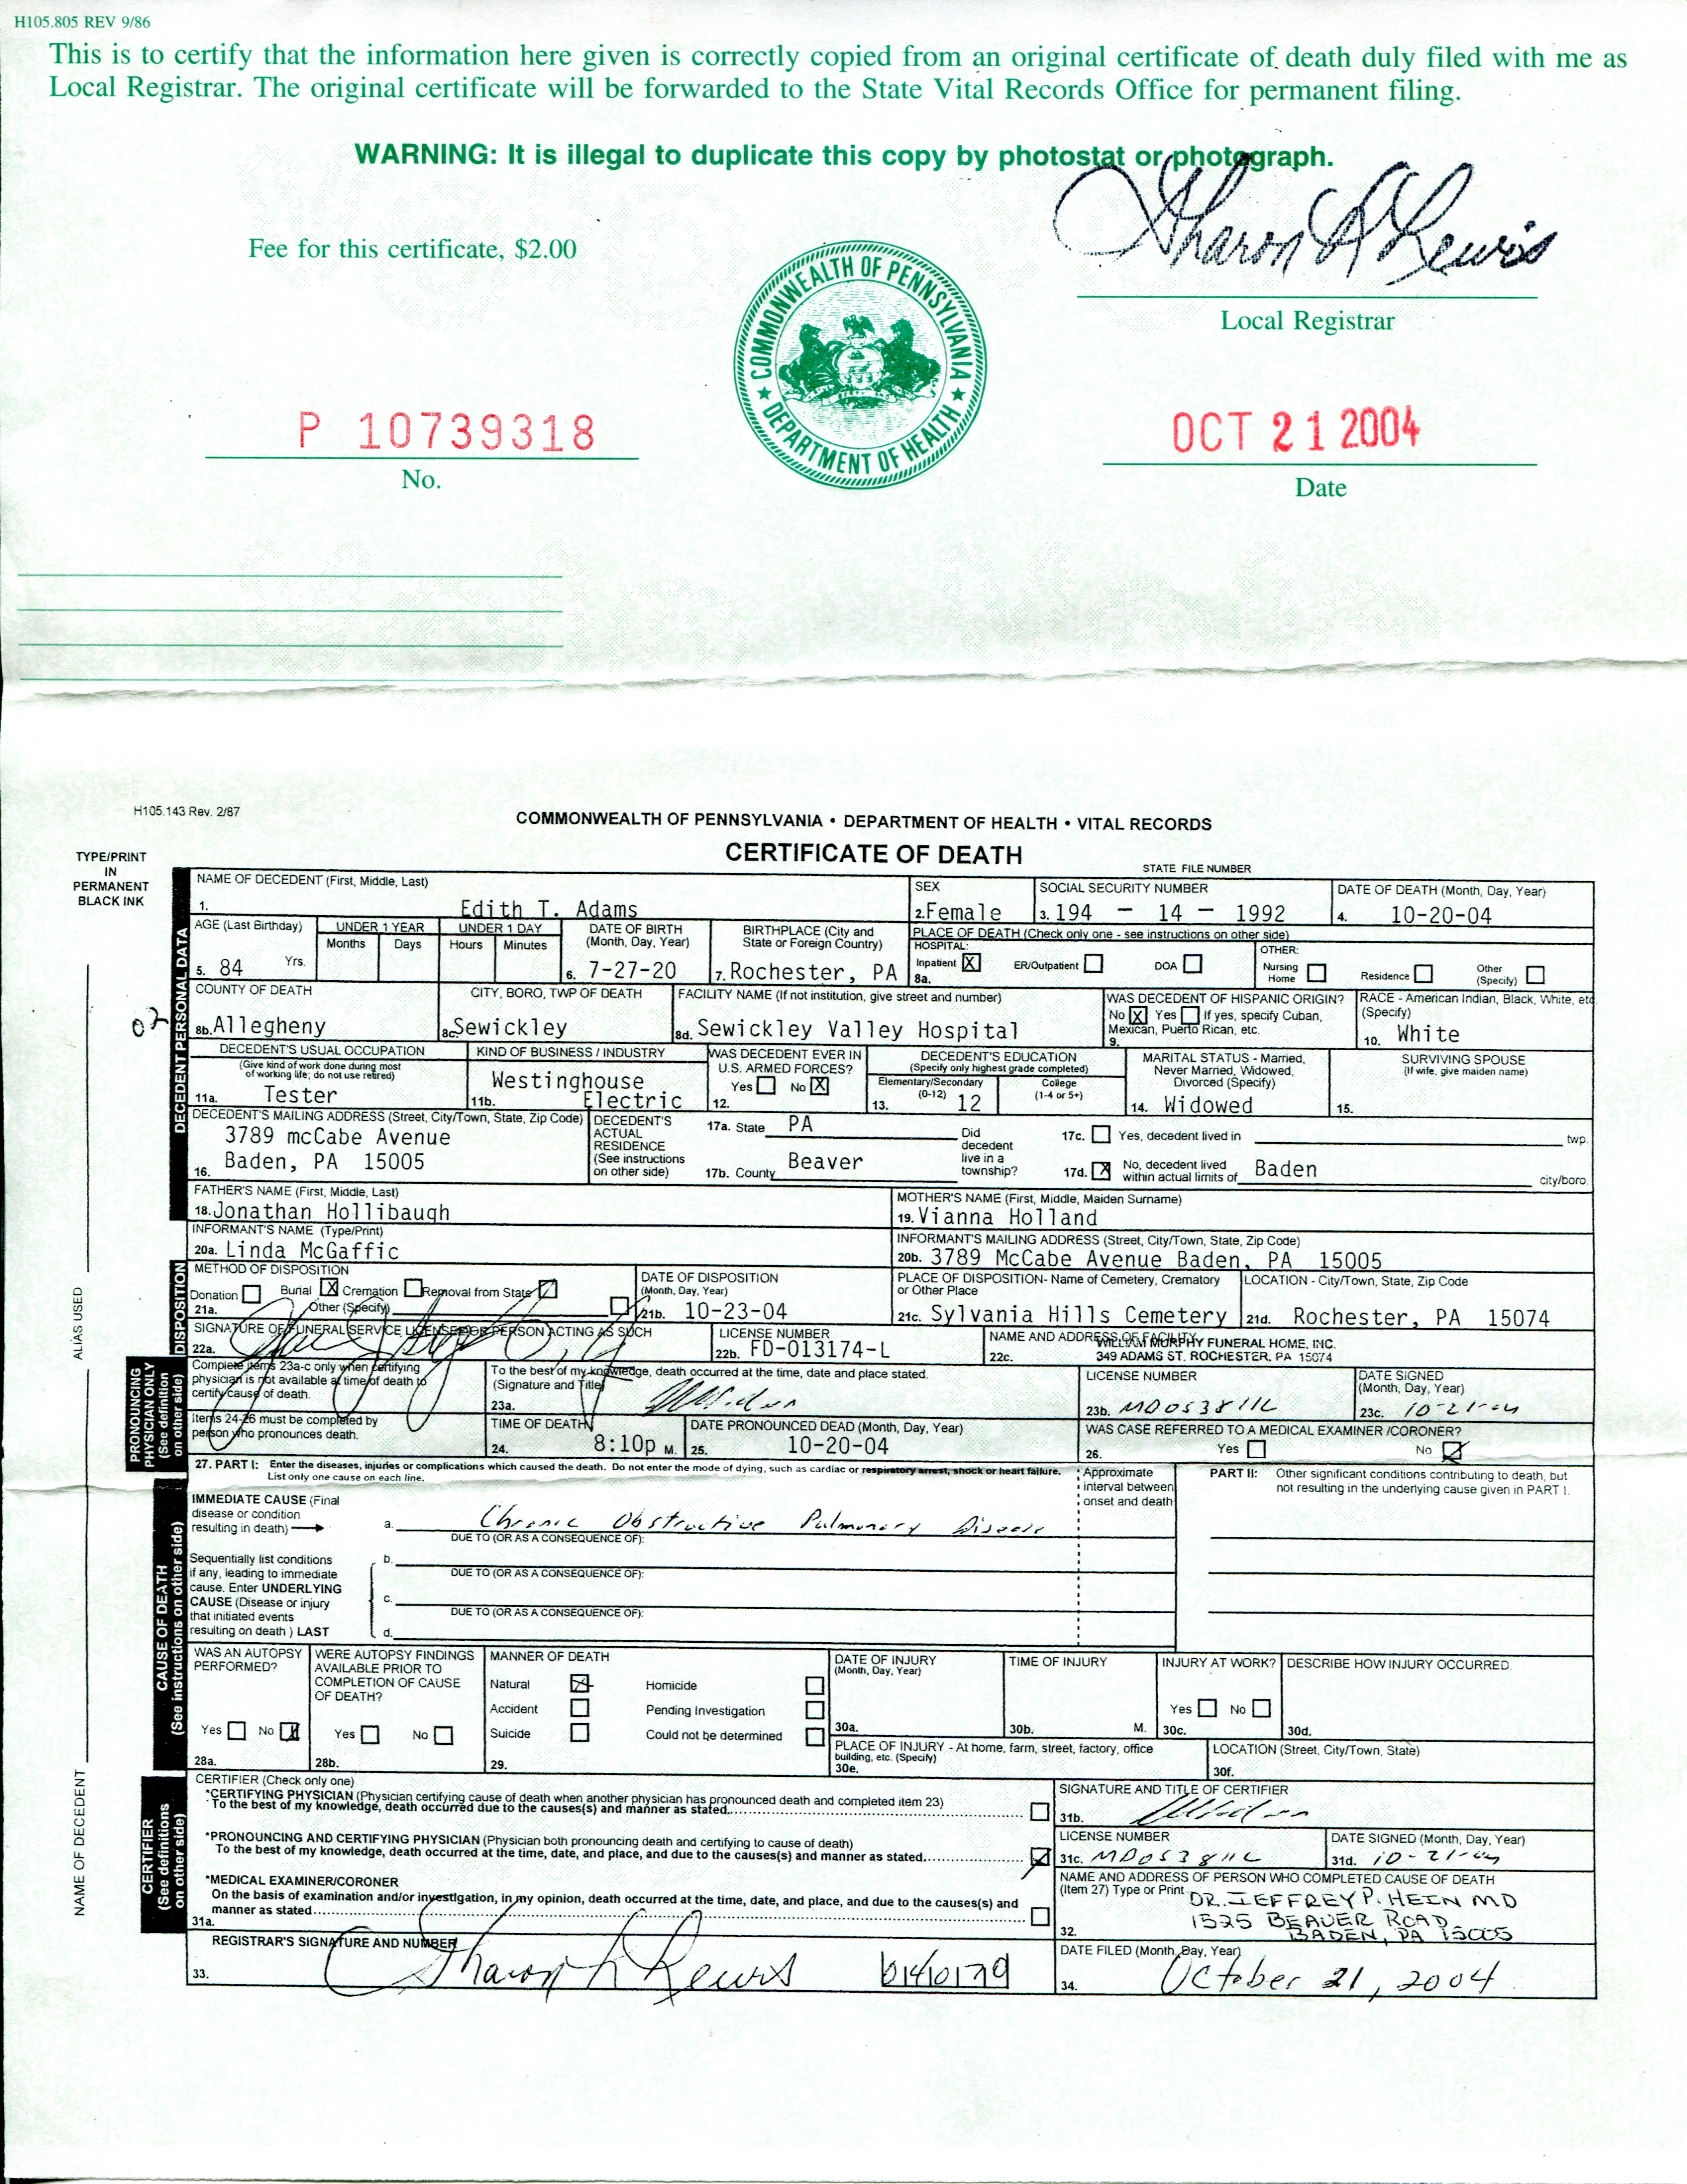 H105.805 REV 9/86
This is to certify that the information here given is correctly copied from an original certificate of death duly filed with me as
Local Registrar. The original certificate will be forwarded to the State Vital Records Office for permanent filing.
WARNING: It is illegal to duplicate this copy by photostat or photograph.
Sharon L Lewis
Fee for this certificate, $2.00
COMMONWEALTH OF PENNSYLVANIA
DEPARTMENT OF HEALTH
Local Registrar
P 10739318
OCT 21 2004
No.
Date
H105.143 Rev. 2/87
COMMONWEALTH OF PENNSYLVANIA • DEPARTMENT OF HEALTH • VITAL RECORDS
CERTIFICATE OF DEATH
STATE FILE NUMBER
TYPE/PRINT
IN
PERMANENT
BLACK INK
DECEDENT PERSONAL DATA
NAME OF DECEDENT (First, Middle, Last)
1. Edith T. Adams
SEX
2. Female
SOCIAL SECURITY NUMBER
3. 194 — 14 — 1992
DATE OF DEATH (Month, Day, Year)
4. 10-20-04
AGE (Last Birthday)
5. 84 Yrs.
UNDER 1 YEAR
Months Days
UNDER 1 DAY
Hours Minutes
DATE OF BIRTH
(Month, Day, Year)
6. 7-27-20
BIRTHPLACE (City and
State or Foreign Country)
7. Rochester, PA
PLACE OF DEATH (Check only one - see instructions on other side)
HOSPITAL:
Inpatient X ER/Outpatient DOA
8a.
OTHER:
Nursing
Home
Residence
Other
(Specify)
07
COUNTY OF DEATH
8b. Allegheny
CITY, BORO, TWP OF DEATH
8c. Sewickley
FACILITY NAME (If not institution, give street and number)
8d. Sewickley Valley Hospital
WAS DECEDENT OF HISPANIC ORIGIN?
No X Yes If yes, specify Cuban,
Mexican, Puerto Rican, etc.
9.
RACE - American Indian, Black, White, etc
(Specify)
10. White
DECEDENT'S USUAL OCCUPATION
(Give kind of work done during most
of working life; do not use retired)
11a. Tester
KIND OF BUSINESS / INDUSTRY
Westinghouse
11b. Electric
WAS DECEDENT EVER IN
U.S. ARMED FORCES?
Yes No X
12.
DECEDENT'S EDUCATION
(Specify only highest grade completed)
Elementary/Secondary
(0-12)
13. 12
College
(1-4 or 5+)
MARITAL STATUS - Married,
Never Married, Widowed,
Divorced (Specify)
14. Widowed
SURVIVING SPOUSE
(If wife, give maiden name)
15.
DECEDENT'S MAILING ADDRESS (Street, City/Town, State, Zip Code)
3789 mcCabe Avenue
16. Baden, PA 15005
DECEDENT'S
ACTUAL
RESIDENCE
(See instructions
on other side)
17a. State PA
17b. County Beaver
Did
decedent
live in a
township?
17c. Yes, decedent lived in twp.
17d. X No, decedent lived
within actual limits of Baden city/boro.
FATHER'S NAME (First, Middle, Last)
18. Jonathan Hollibaugh
MOTHER'S NAME (First, Middle, Maiden Surname)
19. Vianna Holland
INFORMANT'S NAME (Type/Print)
20a. Linda McGaffic
INFORMANT'S MAILING ADDRESS (Street, City/Town, State, Zip Code)
20b. 3789 McCabe Avenue Baden, PA 15005
DISPOSITION
METHOD OF DISPOSITION
Donation Burial X Cremation Removal from State
21a. Other (Specify)
DATE OF DISPOSITION
(Month, Day, Year)
21b. 10-23-04
PLACE OF DISPOSITION- Name of Cemetery, Crematory
or Other Place
21c. Sylvania Hills Cemetery
LOCATION - City/Town, State, Zip Code
21d. Rochester, PA 15074
SIGNATURE OF FUNERAL SERVICE LICENSEE OR PERSON ACTING AS SUCH
22a.
LICENSE NUMBER
22b. FD-013174-L
NAME AND ADDRESS OF FACILITY
WILLIAM MURPHY FUNERAL HOME, INC.
22c. 349 ADAMS ST. ROCHESTER, PA 15074
PRONOUNCING
PHYSICIAN ONLY
(See definition
on other side)
Complete items 23a-c only when certifying
physician is not available at time of death to
certify cause of death.
To the best of my knowledge, death occurred at the time, date and place stated.
(Signature and Title)
23a.
LICENSE NUMBER
23b. MD053811L
DATE SIGNED
(Month, Day, Year)
23c. 10-21-04
Items 24-26 must be completed by
person who pronounces death.
TIME OF DEATH
24. 8:10p M.
DATE PRONOUNCED DEAD (Month, Day, Year)
25. 10-20-04
WAS CASE REFERRED TO A MEDICAL EXAMINER /CORONER?
26. Yes No
CAUSE OF DEATH
(See instructions on other side)
27. PART I: Enter the diseases, injuries or complications which caused the death. Do not enter the mode of dying, such as cardiac or respiratory arrest, shock or heart failure.
List only one cause on each line.
Approximate
interval between
onset and death
PART II: Other significant conditions contributing to death, but
not resulting in the underlying cause given in PART I.
IMMEDIATE CAUSE (Final
disease or condition
resulting in death)
a. Chronic Obstructive Pulmonary Disease
DUE TO (OR AS A CONSEQUENCE OF):
Sequentially list conditions
if any, leading to immediate
cause. Enter UNDERLYING
CAUSE (Disease or injury
that initiated events
resulting on death ) LAST
b.
DUE TO (OR AS A CONSEQUENCE OF):
c.
DUE TO (OR AS A CONSEQUENCE OF):
d.
WAS AN AUTOPSY
PERFORMED?
Yes No
28a.
WERE AUTOPSY FINDINGS
AVAILABLE PRIOR TO
COMPLETION OF CAUSE
OF DEATH?
Yes No
28b.
MANNER OF DEATH
Natural Homicide
Accident Pending Investigation
Suicide Could not be determined
29.
DATE OF INJURY
(Month, Day, Year)
30a.
TIME OF INJURY
30b. M.
INJURY AT WORK?
Yes No
30c.
DESCRIBE HOW INJURY OCCURRED.
30d.
PLACE OF INJURY - At home, farm, street, factory, office
building, etc. (Specify)
30e.
LOCATION (Street, City/Town, State)
30f.
CERTIFIER
(See definitions
on other side)
CERTIFIER (Check only one)
*CERTIFYING PHYSICIAN (Physician certifying cause of death when another physician has pronounced death and completed item 23)
To the best of my knowledge, death occurred due to the causes(s) and manner as stated.
*PRONOUNCING AND CERTIFYING PHYSICIAN (Physician both pronouncing death and certifying to cause of death)
To the best of my knowledge, death occurred at the time, date, and place, and due to the causes(s) and manner as stated.
*MEDICAL EXAMINER/CORONER
On the basis of examination and/or investigation, in my opinion, death occurred at the time, date, and place, and due to the causes(s) and
manner as stated
31a.
SIGNATURE AND TITLE OF CERTIFIER
31b.
LICENSE NUMBER
31c. MD053811L
DATE SIGNED (Month, Day, Year)
31d. 10-21-04
NAME AND ADDRESS OF PERSON WHO COMPLETED CAUSE OF DEATH
(Item 27) Type or Print
DR. JEFFREY P. HEIN MD
1525 BEAVER ROAD
32. BADEN, PA 15005
REGISTRAR'S SIGNATURE AND NUMBER
33. Sharon L Lewis 01410179
DATE FILED (Month, Day, Year)
34. October 21, 2004
ALIAS USED
NAME OF DECEDENT